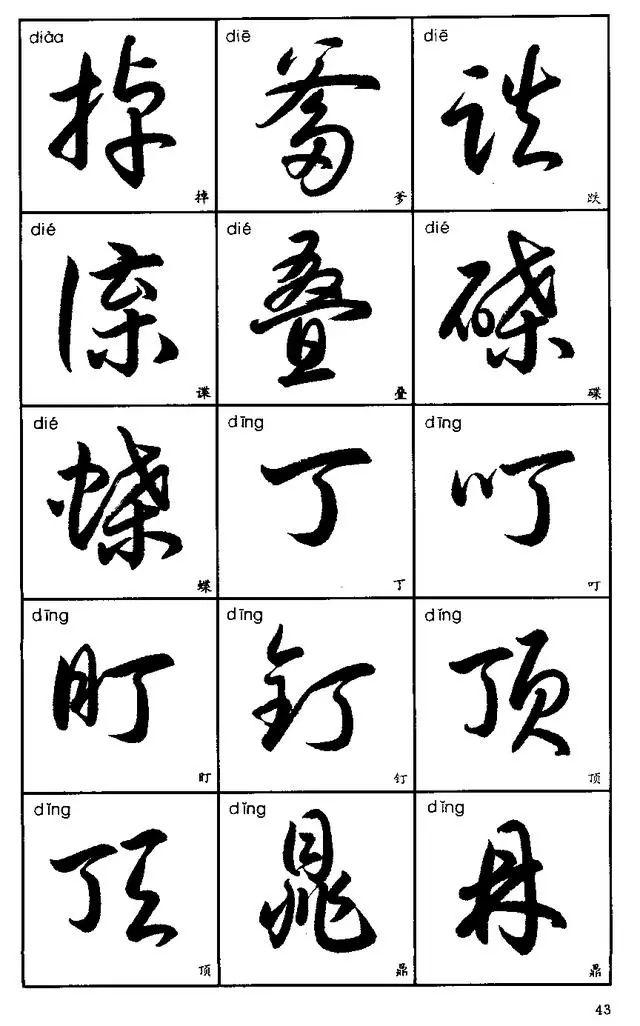 diàa diē diē
掉 爹 跌
掉 爹 跌
dié dié dié
谍 叠 碟
谍 叠 碟
dié dīng dīng
蝶 丁 叮
蝶 丁 叮
dīng dīng dǐng
盯 钉 顶
盯 钉 顶
dǐng dǐng dǐng
顶 鼎 鼎
顶 鼎 鼎
43